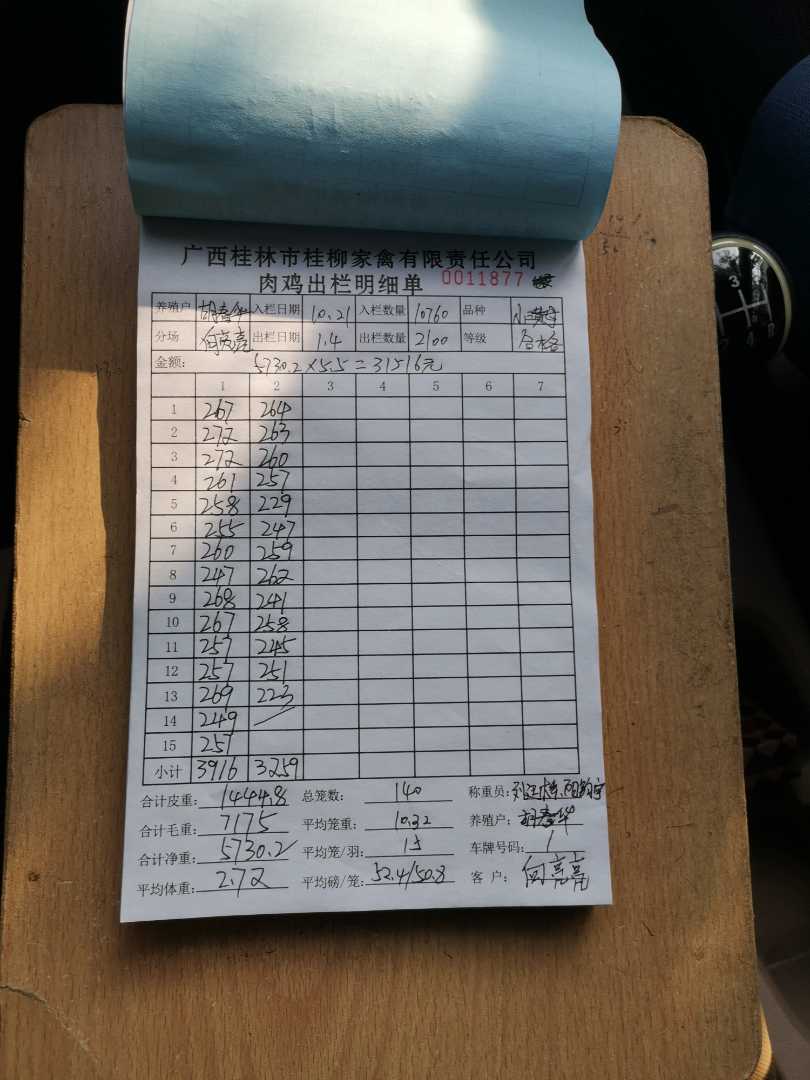 广西桂林市桂柳家禽有限责任公司
肉鸡出栏明细单 0011877
养殖户 胡春华 入栏日期 10.21 入栏数量 10760 品种
分场 何亮亮 出栏日期 1.4 出栏数量 2100 等级 合格
金额: 5730.2×5.5=31516元
1 2 3 4 5 6 7
1 267 264
2 272 263
3 272 260
4 261 257
5 258 229
6 255 247
7 260 259
8 247 262
9 268 241
10 267 258
11 257 245
12 257 251
13 269 223
14 249
15 257
小计 3916 3259
合计皮重: 1444.8 总笼数: 140 称重员:
合计毛重: 7175 平均笼重: 10.32 养殖户: 胡春华
合计净重: 5730.2 平均笼/羽: 15 车牌号码: 1
平均体重: 2.72 平均磅/笼: 52.4/50.8 客 户: 何亮亮